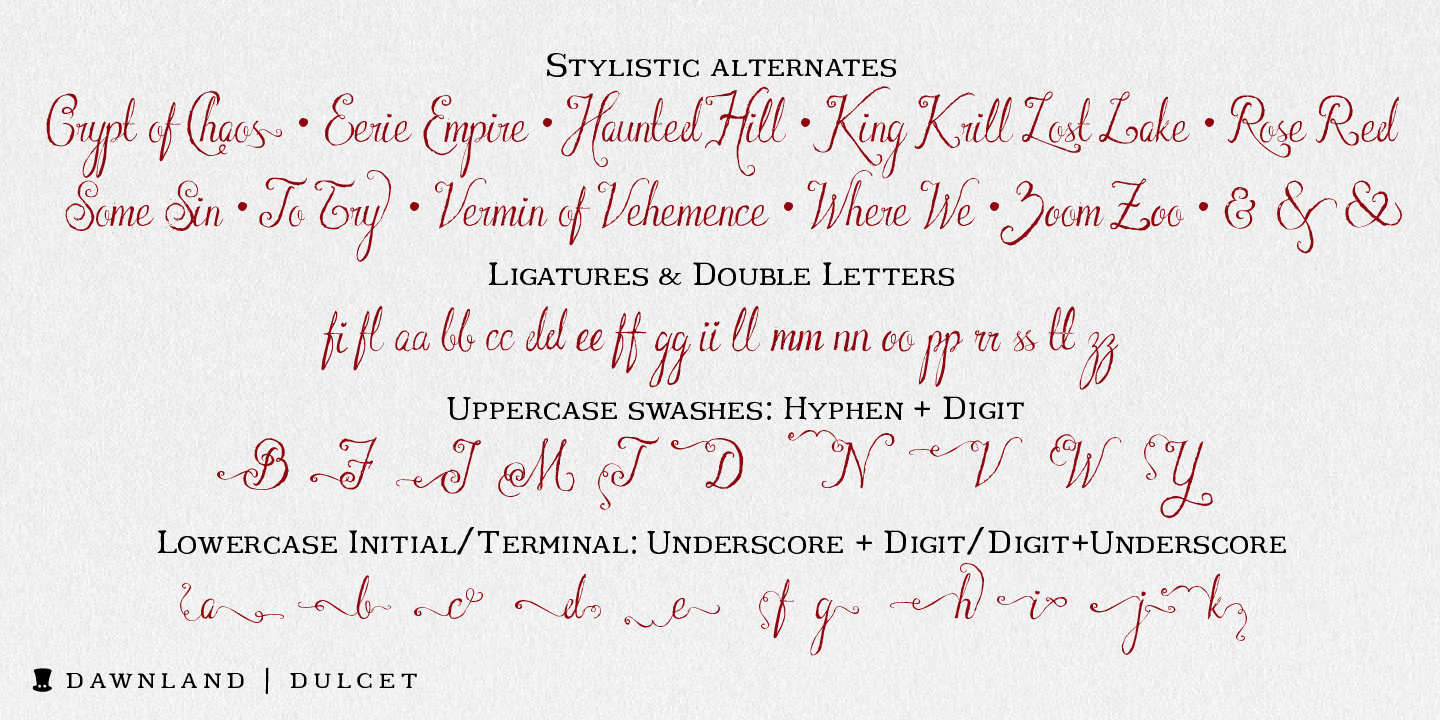 Stylistic alternates
Crypt of Chaos • Eerie Empire • Haunted Hill • King Krill Lost Lake • Rose Red
Some Sin • To Try • Vermin of Vehemence • Where We • Zoom Zoo • & & &
Ligatures & Double Letters
fi fl aa bb cc dd ee ff gg ii ll mm nn oo pp rr ss tt zz
Uppercase swashes: Hyphen + Digit
B F J M T D N V W Y
Lowercase Initial/Terminal: Underscore + Digit/Digit+Underscore
a b c d e f g h i j k
DAWNLAND | DULCET